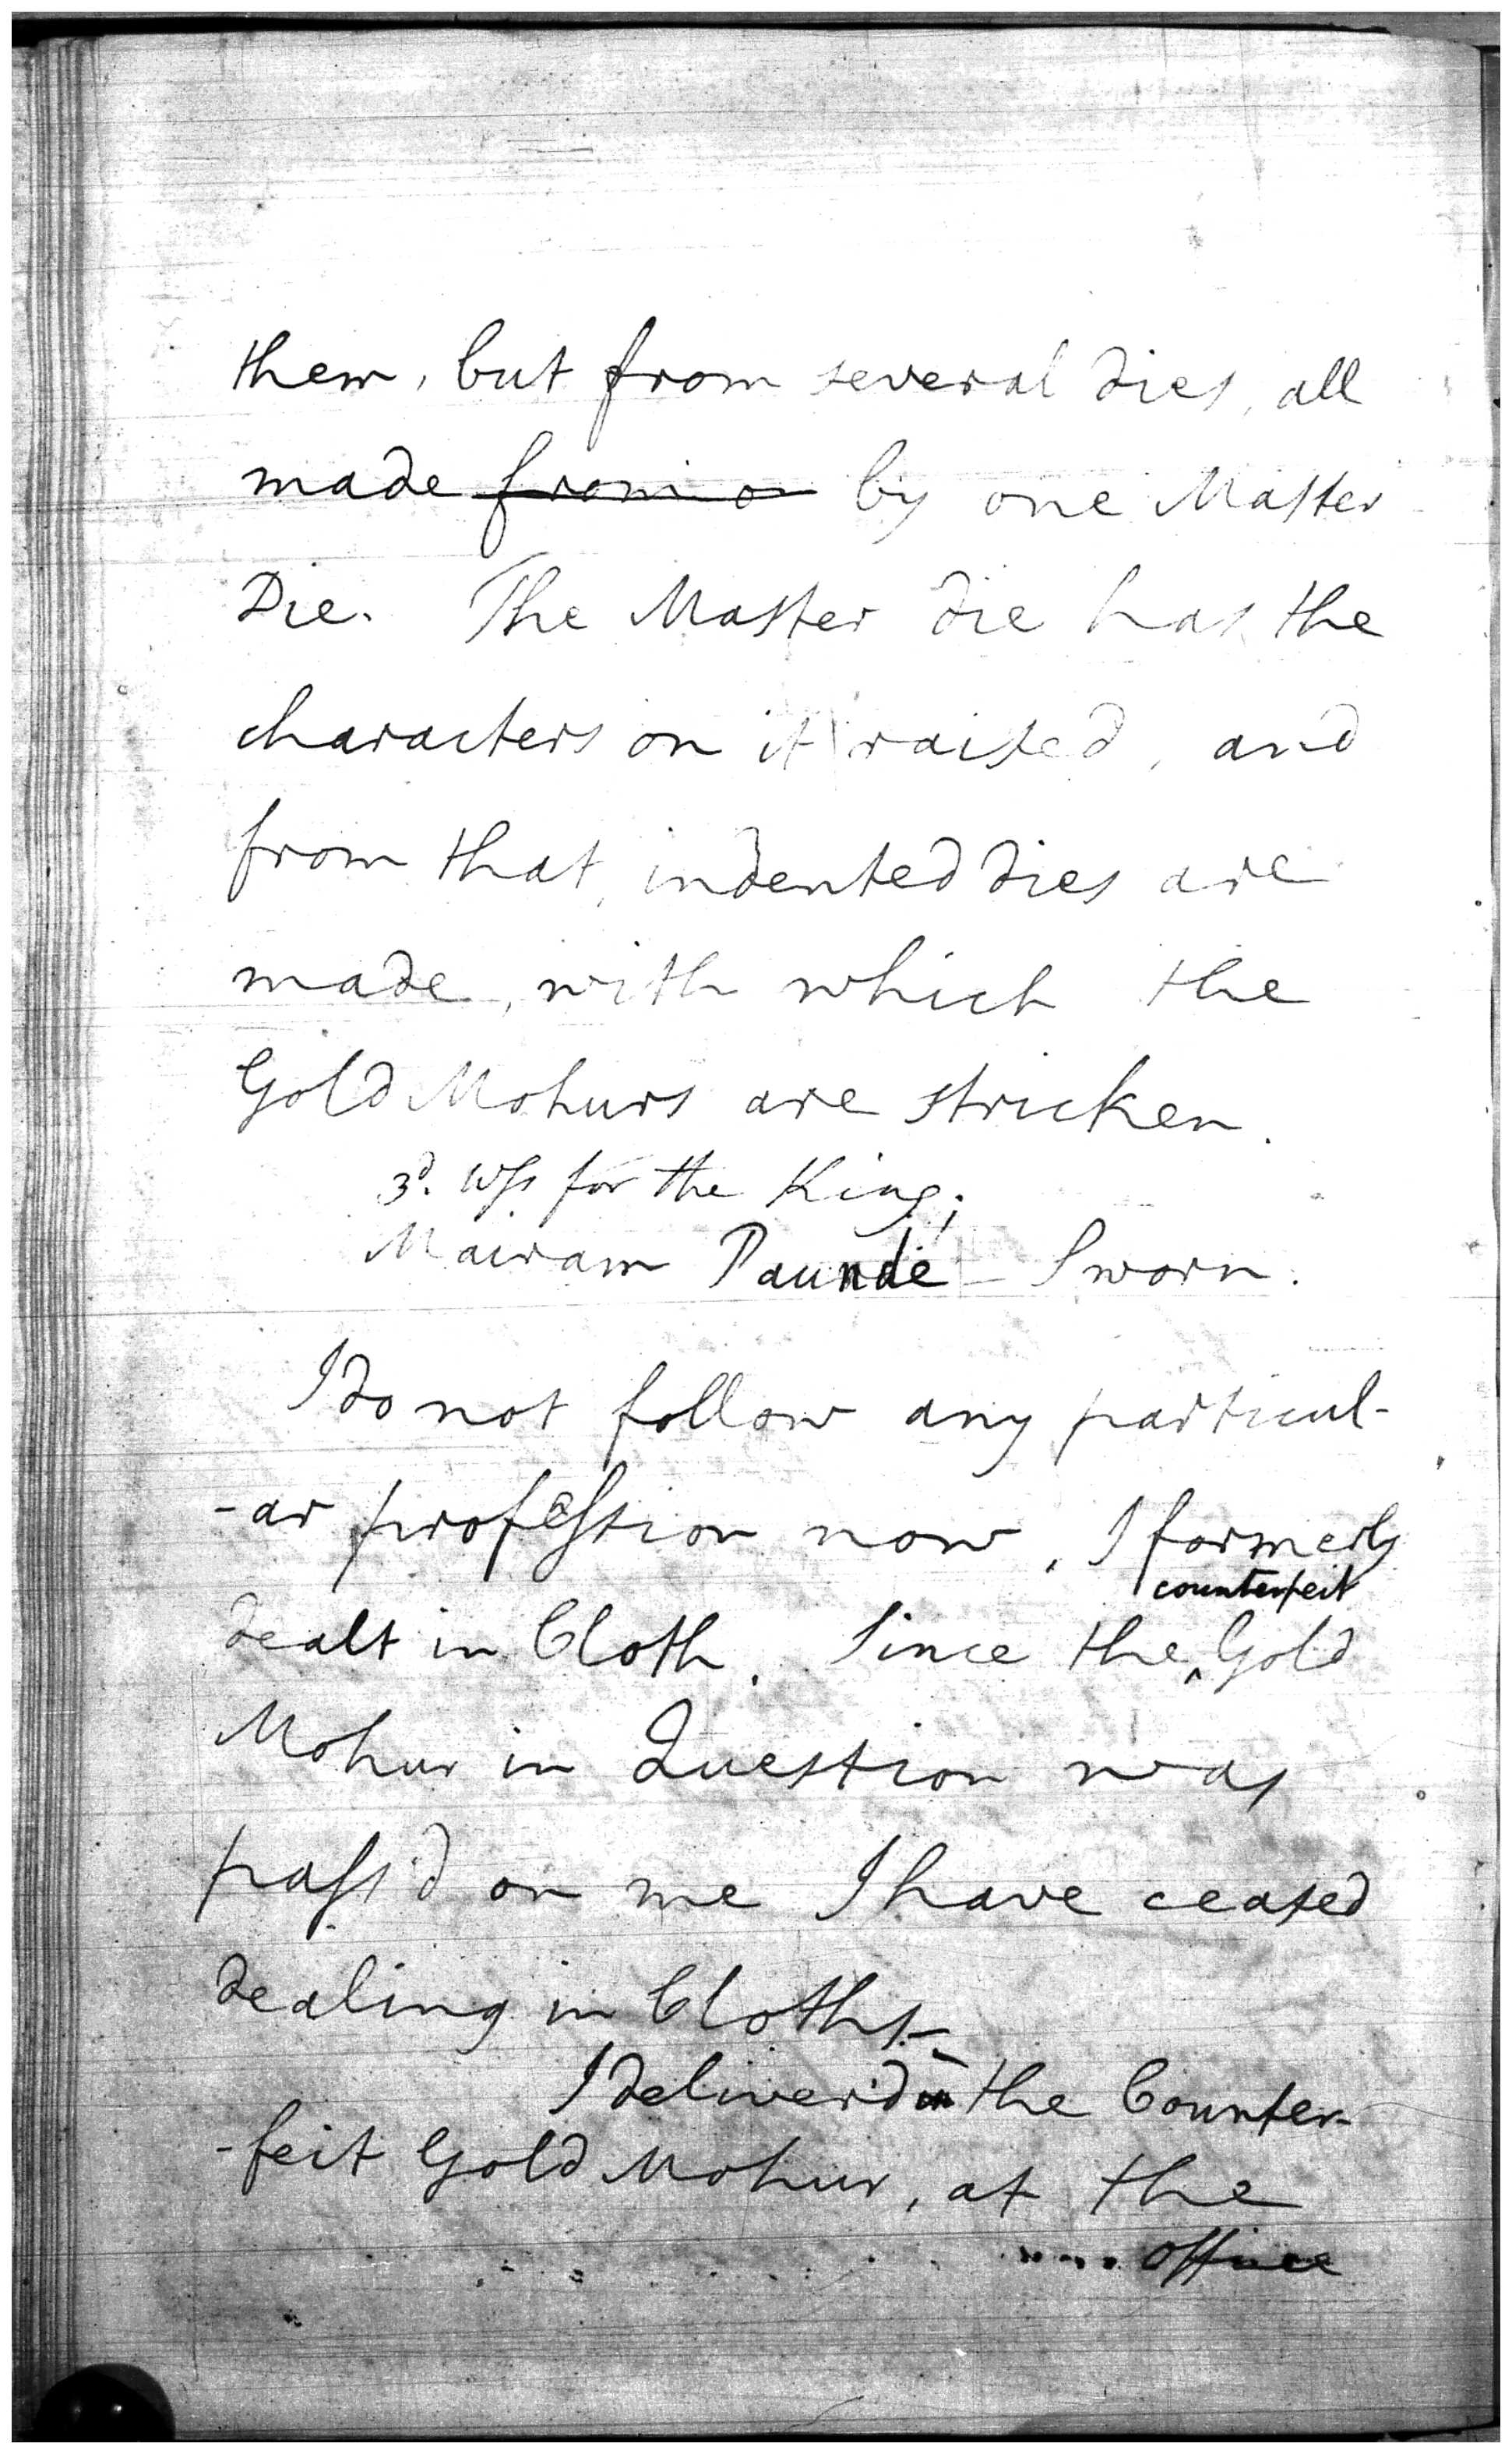 them, but from several dies, all
made from o by one Master
Die. The Master die has the
characters on it raised, and
from that, indented dies are
made, with which the
Gold Mohurs are stricken.
3d. Wss for the King;
Mairam Paundé – Sworn.
I do not follow any particul-
-ar profession now, I formerly
counterfeit
dealt in Cloth. Since the ^ Gold
Mohur in Question was
pass'd on me I have ceased
dealing in Cloths –
I deliver'd in the Counter-
-feit Gold Mohur, at the
office